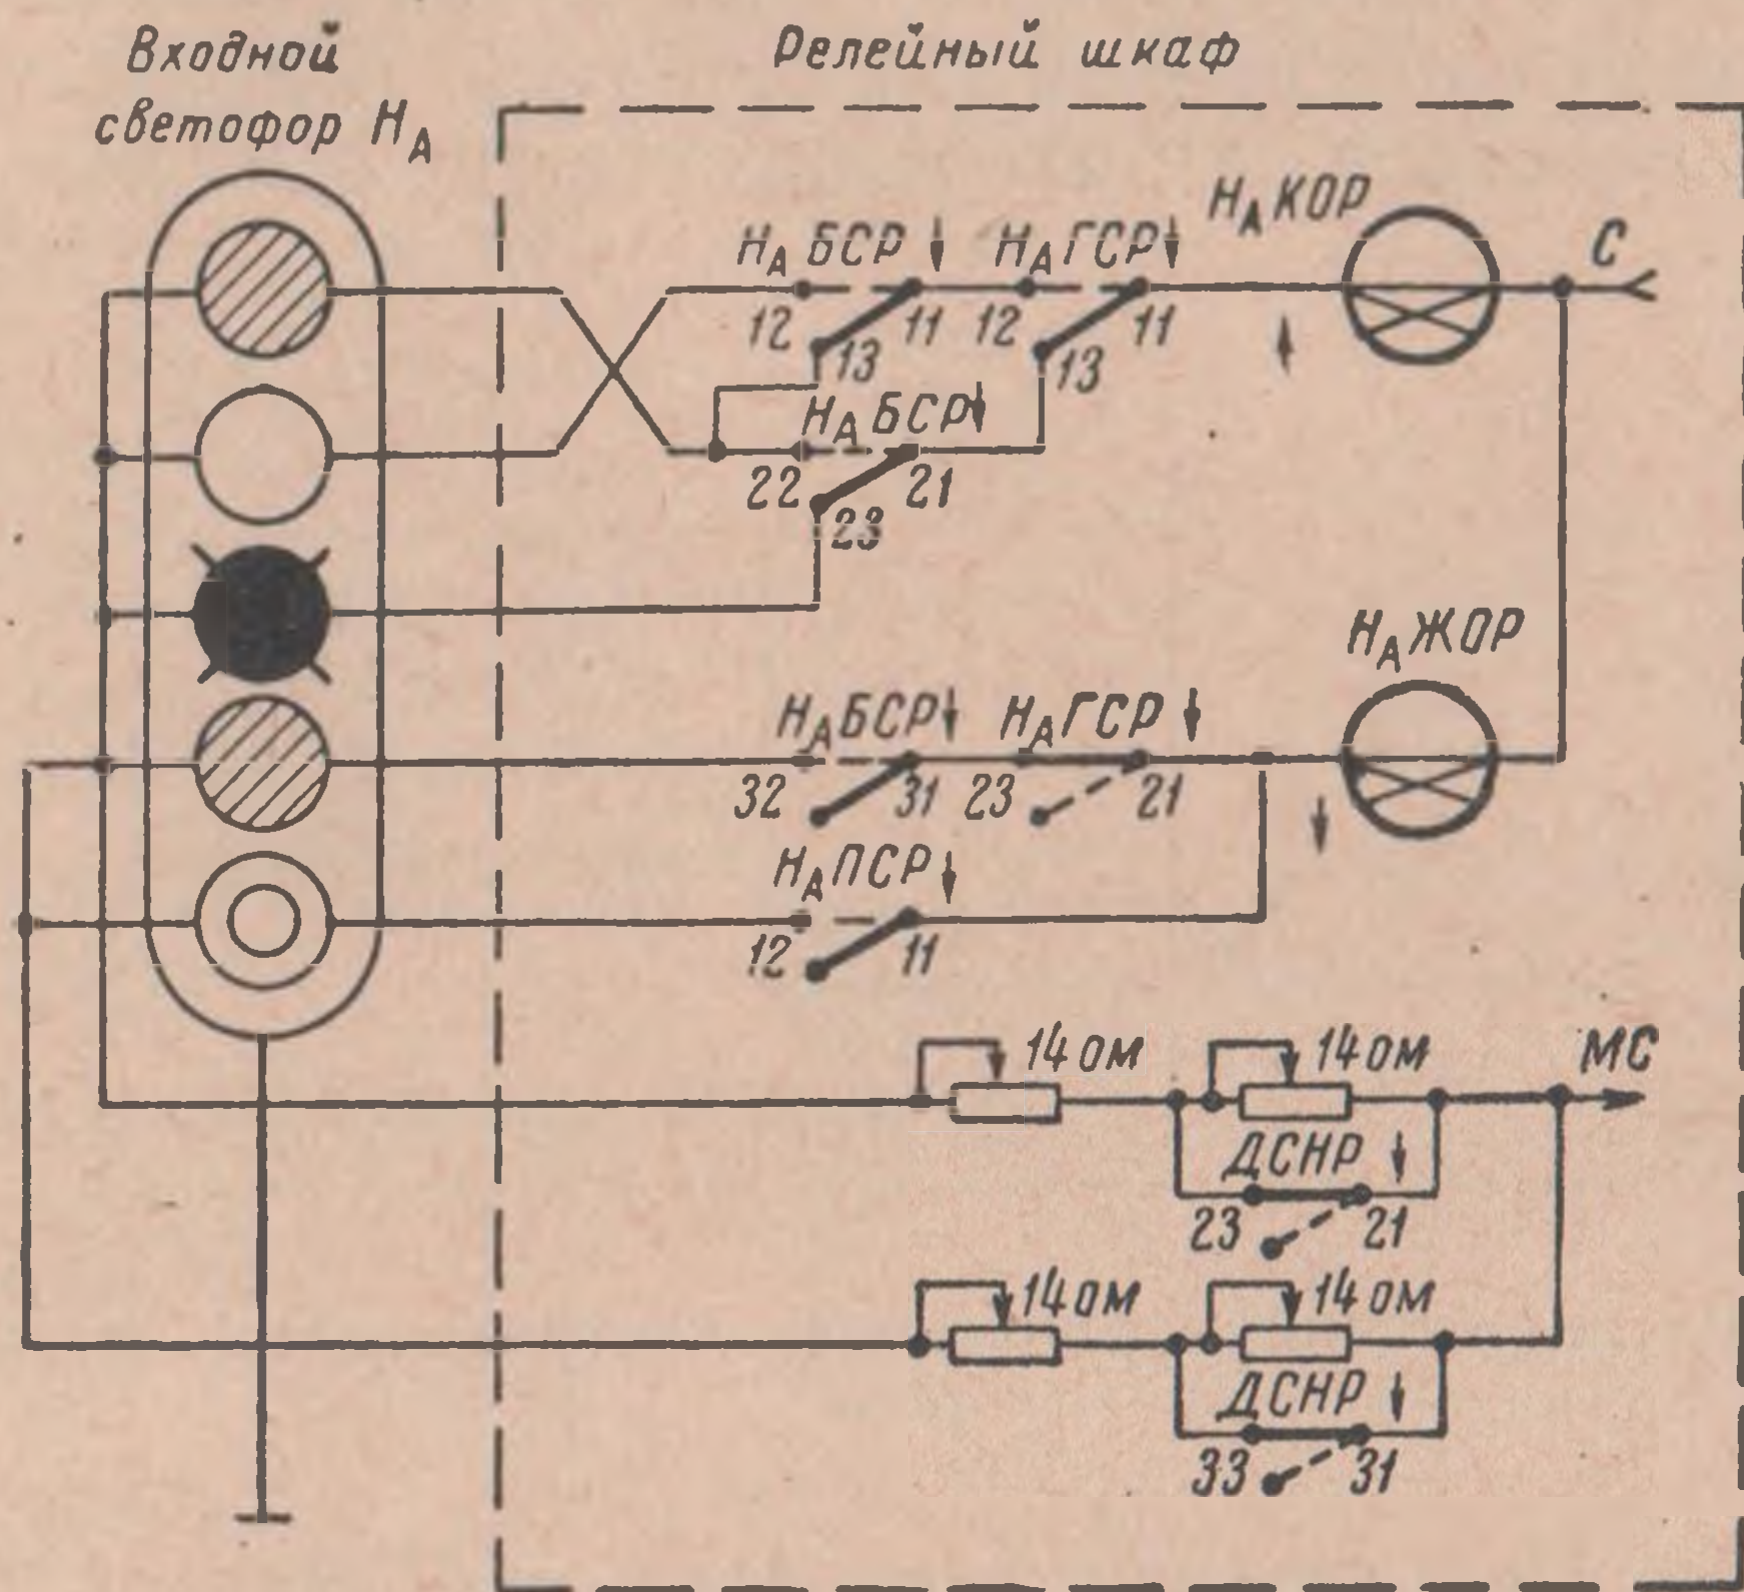 Входной
светофор НА
Релейный шкаф
НАКОР
С
НАБСР
НАГСР
12
11
12
11
13
13
НАБСР
22
21
23
НАЖОР
НАБСР
НАГСР
32
31
23
21
НАПСР
12
11
14 ом
14 ом
МС
ДСНР
23
21
14 ом
14 ом
ДСНР
33
31